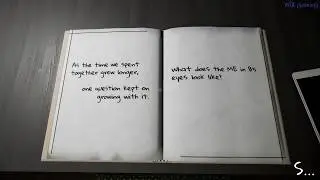 As the time we spent
together grew longer,
one question kept on
growing with it.
What does the ME in his
eyes look like?
S...